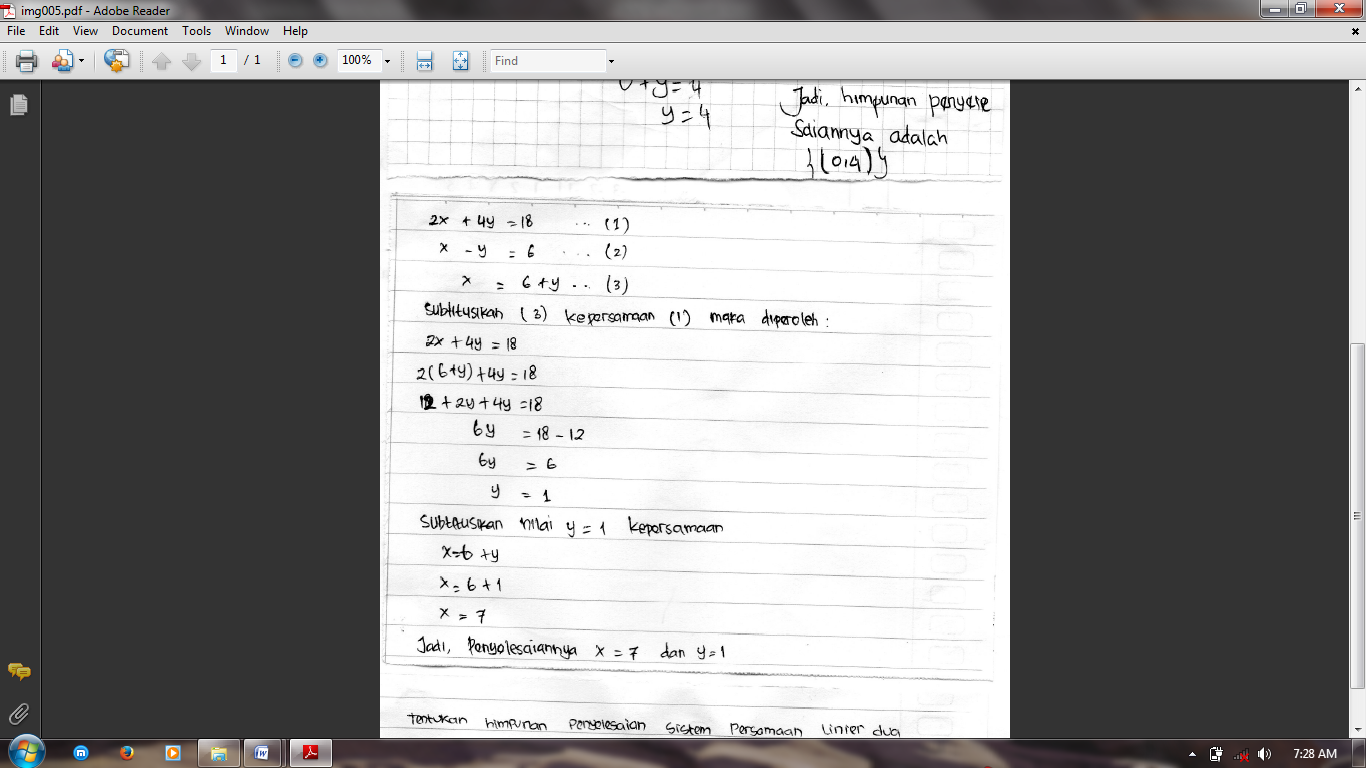 img005.pdf - Adobe Reader
File Edit View Document Tools Window Help
1 / 1 100% Find
0 + y = 4
y = 4
Jadi, himpunan penyele
Saiannya adalah
{(0,4)}
2x + 4y = 18 ... (1)
x - y = 6 ... (2)
x = 6 + y ... (3)
Subtitusikan (3) kepersamaan (1) maka diperoleh :
2x + 4y = 18
2(6+y) + 4y = 18
12 + 2y + 4y = 18
6y = 18 - 12
6y = 6
y = 1
Subtitusikan nilai y = 1 kepersamaan
x = 6 + y
x = 6 + 1
x = 7
Jadi, Penyelesaiannya x = 7 dan y = 1
Tentukan himpunan Penyelesaian Sistem Persamaan Linier dua
7:28 AM